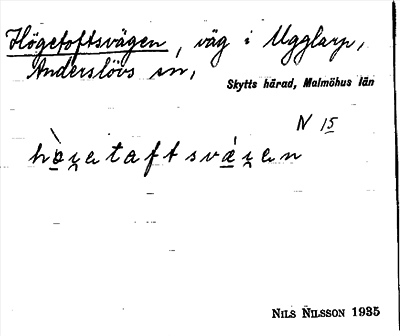 Högetoftsvägen, väg i Ugglarp,
Anderslövs sn,
Skytts härad, Malmöhus län
N 15
hø̀γ̯etaftsvǽγ̯en
NILS NILSSON 1935